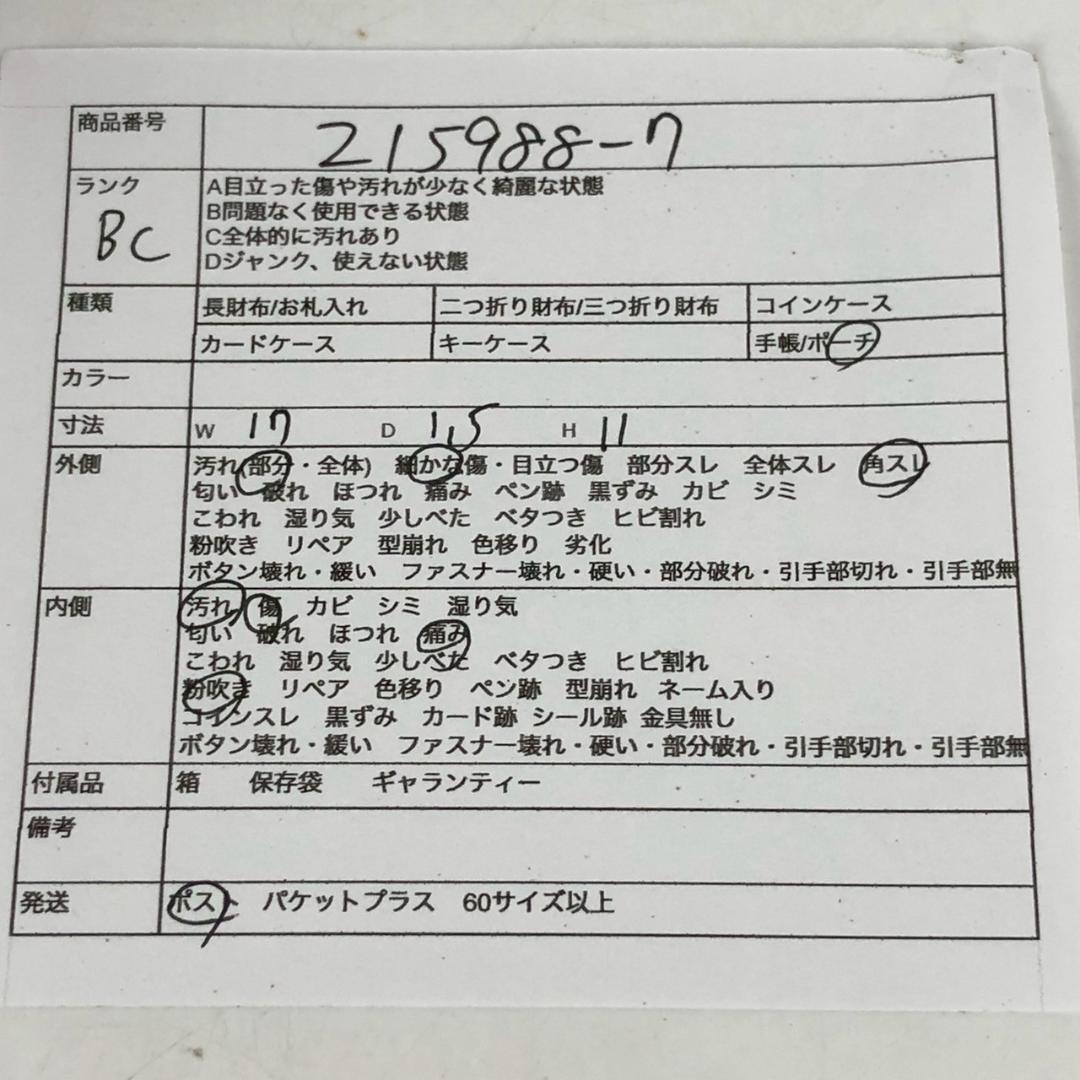 商品番号 215988-7
ランク BC
A目立った傷や汚れが少なく綺麗な状態
B問題なく使用できる状態
C全体的に汚れあり
Dジャンク、使えない状態
種類 長財布/お札入れ 二つ折り財布/三つ折り財布 コインケース
カードケース キーケース 手帳/ポーチ
カラー
寸法 W 17 D 1.5 H 11
外側 汚れ(部分・全体) 細かな傷・目立つ傷 部分スレ 全体スレ 角スレ
匂い 破れ ほつれ 痛み ペン跡 黒ずみ カビ シミ
こわれ 湿り気 少しべた ベタつき ヒビ割れ
粉吹き リペア 型崩れ 色移り 劣化
ボタン壊れ・緩い ファスナー壊れ・硬い・部分破れ・引手部切れ・引手部無
内側 汚れ 傷 カビ シミ 湿り気
匂い 破れ ほつれ 痛み
こわれ 湿り気 少しべた ベタつき ヒビ割れ
粉吹き リペア 色移り ペン跡 型崩れ ネーム入り
コインスレ 黒ずみ カード跡 シール跡 金具無し
ボタン壊れ・緩い ファスナー壊れ・硬い・部分破れ・引手部切れ・引手部無
付属品 箱 保存袋 ギャランティー
備考
発送 ポスト パケットプラス 60サイズ以上